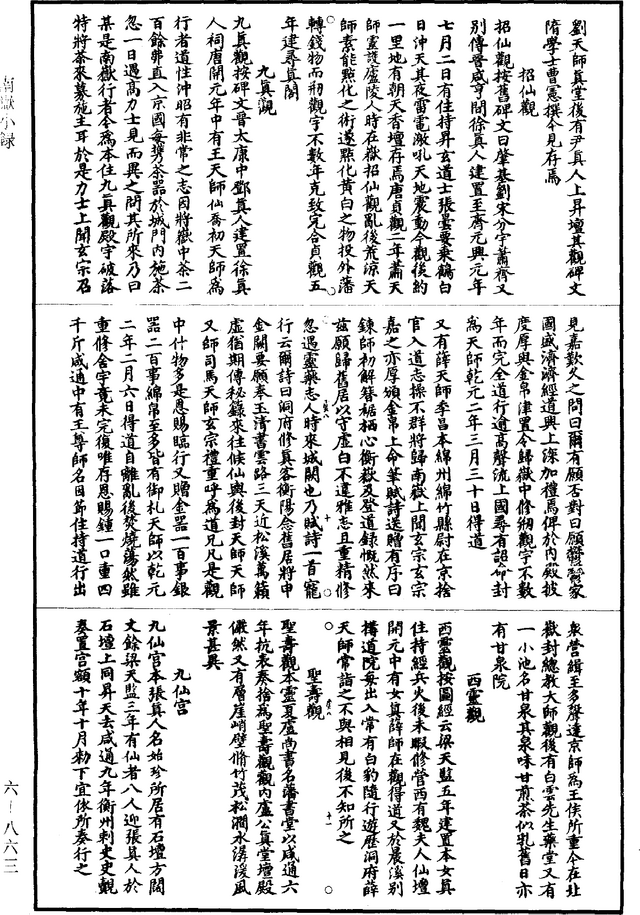 劉天師真堂後有尹真人上昇壇其觀碑文
隋學士曹憲撰今見存焉
招仙觀
招仙觀按舊碑文曰肇基劉宋分宇蕭齊又
別傳晉咸亨間徐真人建置至齊元興元年
七月二日有住持昇玄道士張曇要乘鶴白
日沖天其夜雷電激吼天地震動今觀後約
一里地有朝天香壇存焉唐貞觀二年蕭天
師靈護廬陵人時在嶽招仙觀亂後荒涼天
師素能點化之術遂點化黃白之物投外藩
轉錢物而刱觀宇不數年克致完合貞觀五
年建尋真閣
九真觀
九真觀按碑文晉太康中鄧真人建置徐真
人祠唐開元年中有王天師仙喬初天師為
行者道性沖昭有非常之志因將嶽中茶二
百餘串直入京國每攜茶器於城門內施茶
忽一日遇高力士見而異之問其所來乃曰
某是南嶽行者今為本住九真觀殿宇破落
特將茶來募施主耳於是力士上聞玄宗召
見嘉歎久之問曰爾有願否對曰願鬱鬱家
國盛濟濟經道興上深加禮焉俾於內殿披
度厚與金帛津置令歸嶽中修刱觀宇不數
年而完全道行逾高聲流上國尋有詔命封
為天師乾元二年三月三十日得道
又有薛天師季昌本綿州綿竹縣尉在京捨
官入道志操不群將歸南嶽上聞玄宗玄宗
嘉之亦厚頒金帛上命筆賦詩送贈有序曰
鍊師初解簪裾栖心衡嶽及登道錄慨然來
茲願歸舊居以守虛白不違雅志且重精修
忽遇靈藥志人時來城闕也乃賦詩一首寵
行云爾詩曰洞府修真客衡陽念舊居將中
金闕要願奉玉清書雲路三天近松溪萬籟
虛猶期傳秘錄來往候仙輿後封天師天師
又師司馬天師玄宗禮重呼為道兄凡是觀
中什物多是恩賜臨行又贈金器一百事銀
器二百事綿帛至多皆有御札天師以乾元
二年二月六日得道自離亂後焚燒蕩然雖
重修舍宇竟未完復唯存恩賜鍾一口重四
千斤咸通中有王尊師名固節住持道行出
衆營緝至多聲達京師為王侯所重今在壯
嶽封總教大師觀後有白雲先生藥堂又有
一小池名甘泉其泉味甘煎茶似乳舊曰亦
有甘泉院
西靈觀
西靈觀按圖經云梁天監五年建置本女真
住持經兵火後未暇修營西有魏夫人仙壇
開元中有女真薛師在觀得道又於晨溪別
構道院每出入常有白豹隨行遊歷洞府薛
天師常詣之不與相見後不知所之
聖壽觀
聖壽觀本靈夏盧尚書名藩書堂以咸通六
年抗表奏捨為聖壽觀觀內盧公真堂壇殿
儼然又有層崖峭壁脩竹茂松澗水潺湲風
景甚異
九仙宮
九仙宮本張真人名始珍所居有石壇方闊
丈餘梁天監三年有仙者八人迎張真人於
石壇上同昇天去咸通九年衡州刺史史觀
奏置宮額十年十月勅下宜依所奏行之
南嶽小録
六—八六三